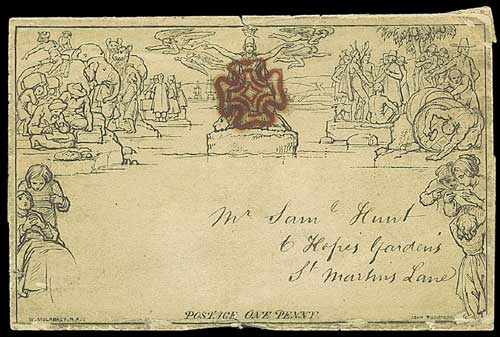 Mr Saml Hunt
6 Hopes Gardens
St Martins Lane
POSTAGE ONE PENNY.
W. MULREADY, R.A.
JOHN THOMPSON